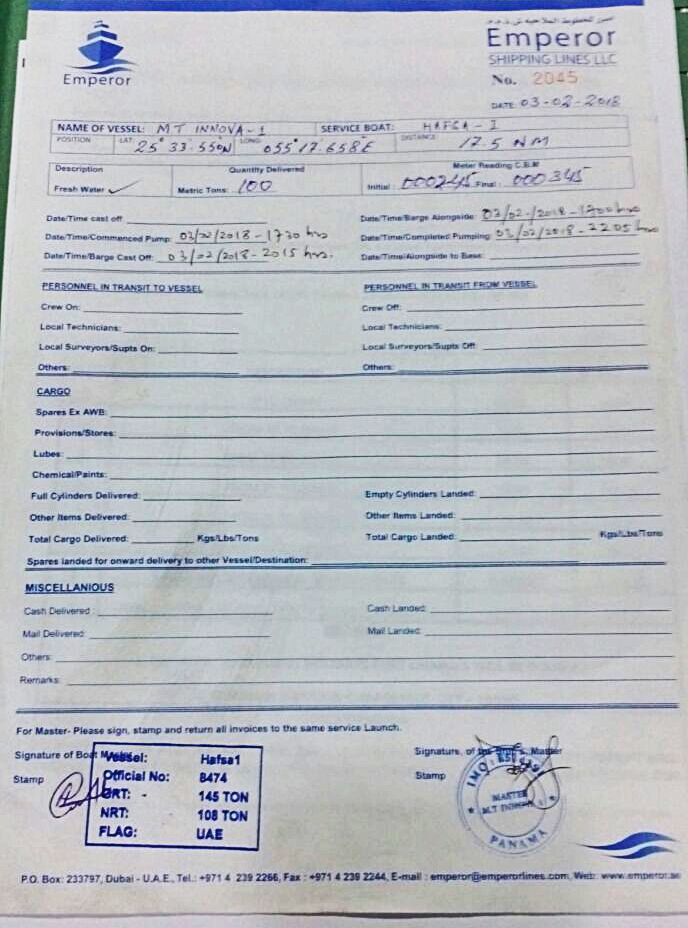 Emperor
Emperor
SHIPPING LINES LLC
No. 2045
DATE: 03-02-2018
NAME OF VESSEL: MT INNOVA-1 SERVICE BOAT: HAFSA-I
POSITION LAT: 25° 33.550N LONG: 055° 17.658E DISTANCE: 17.5 NM
Description Quantity Delivered Meter Reading C.B.M
Fresh Water ✓ Metric Tons: 100 Initial: 000245 Final: 000345
Date/Time cast off: Date/Time/Barge Alongside: 03/02/2018-1700 hrs
Date/Time/Commenced Pump: 03/02/2018-1730 hrs Date/Time/Completed Pumping: 03/02/2018-2205 hrs
Date/Time/Barge Cast Off: 03/02/2018-2015 hrs. Date/Time/Alongside to Base:
PERSONNEL IN TRANSIT TO VESSEL PERSONNEL IN TRANSIT FROM VESSEL
Crew On: Crew Off:
Local Technicians: Local Technicians:
Local Surveyors/Supts On: Local Surveyors/Supts Off:
Others: Others:
CARGO
Spares Ex AWB:
Provisions/Stores:
Lubes:
Chemical/Paints:
Full Cylinders Delivered: Empty Cylinders Landed:
Other Items Delivered: Other Items Landed:
Total Cargo Delivered: Kgs/Lbs/Tons Total Cargo Landed: Kgs/Lbs/Tons
Spares landed for onward delivery to other Vessel/Destination:
MISCELLANIOUS
Cash Delivered: Cash Landed:
Mail Delivered: Mail Landed:
Others:
Remarks:
For Master- Please sign, stamp and return all invoices to the same service Launch.
Signature of Boat Master Signature, of Master
Stamp Stamp
Vessel: Hafsa1
Official No: 8474
GRT: - 145 TON
NRT: 108 TON
FLAG: UAE
IMO:
MASTER
M.T INNOVA 1
PANAMA
P.O. Box: 233797, Dubai - U.A.E., Tel.: +971 4 239 2266, Fax : +971 4 239 2244, E-mail : emperor@emperorlines.com, Web: www.emperor.ae